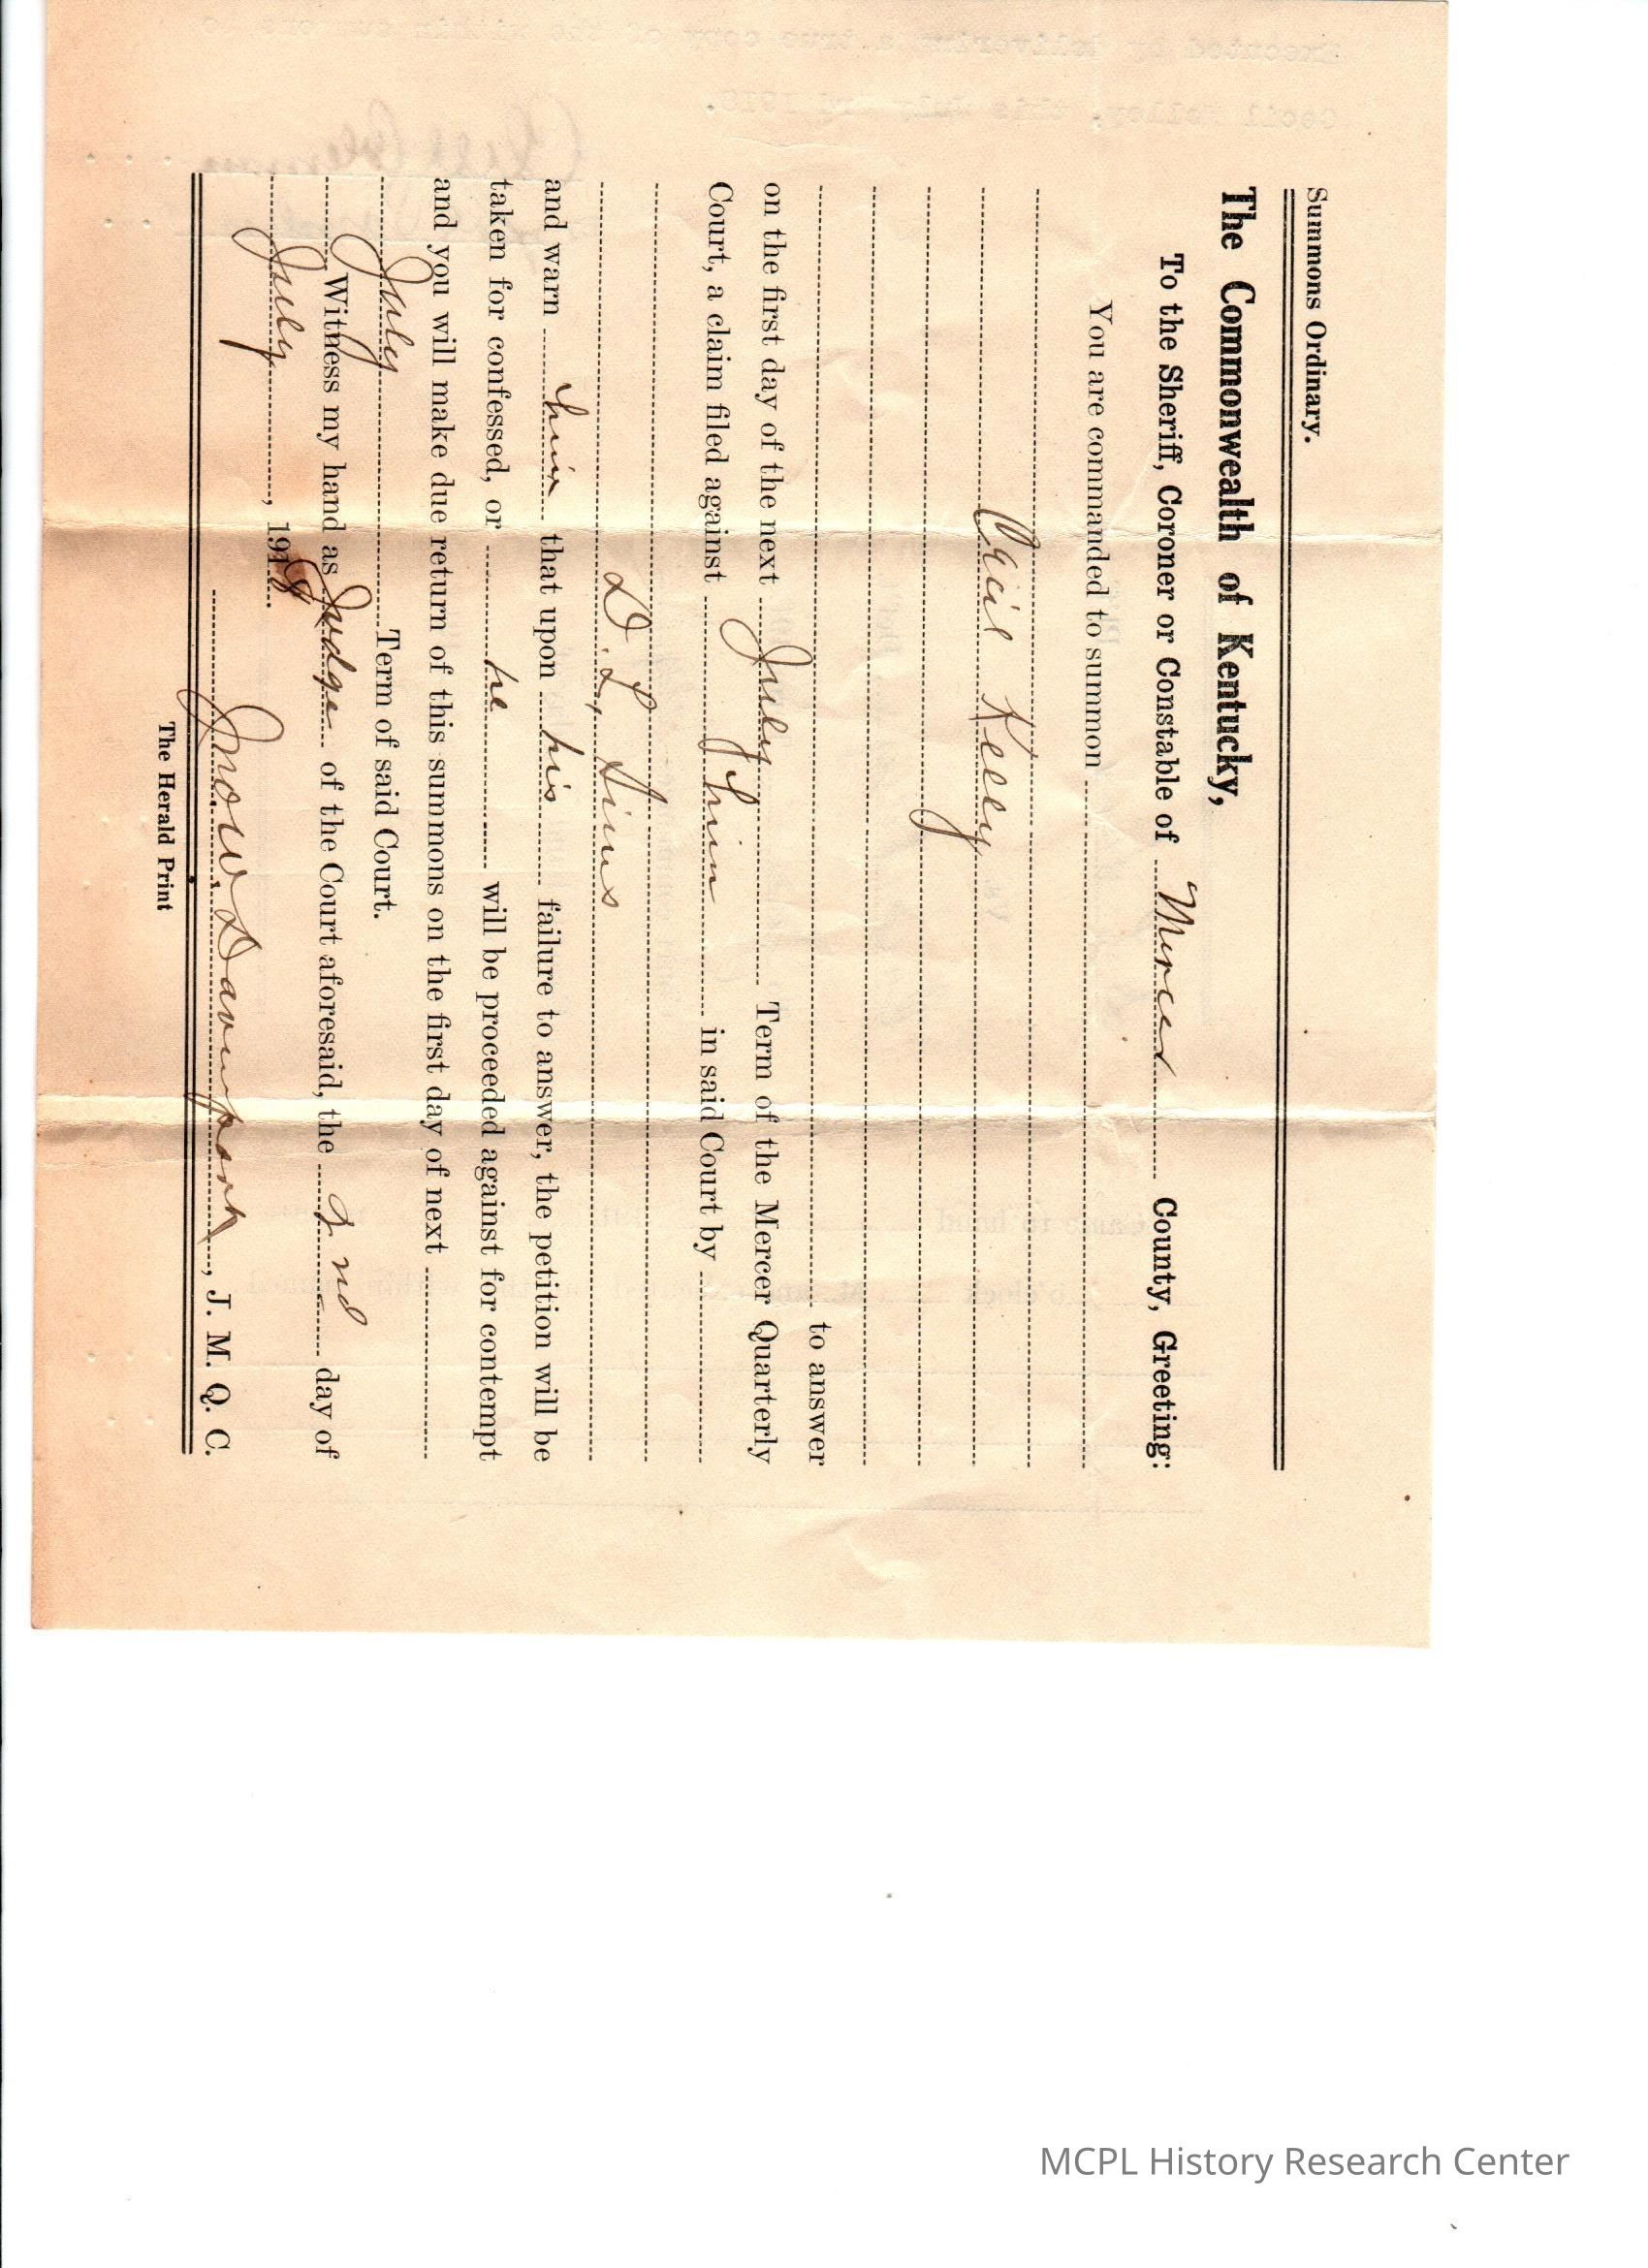 Summons Ordinary.
The Commonwealth of Kentucky,
To the Sheriff, Coroner or Constable of Mercer County, Greeting:
You are commanded to summon
Cecil Kelly
to answer
on the first day of the next July Term of the Mercer Quarterly
Court, a claim filed against him in said Court by
D. L. Sims
and warn him that upon his failure to answer, the petition will be
taken for confessed, or he will be proceeded against for contempt
and you will make due return of this summons on the first day of next
July Term of said Court.
Witness my hand as Judge of the Court aforesaid, the 2nd day of
July, 1918
Jno W Davenport, J. M. Q. C.
The Herald Print
MCPL History Research Center